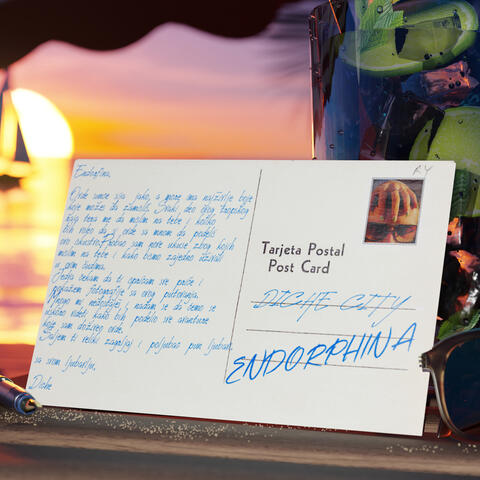 Endorfina,
Ovde sunce sija jako, a more ima najživlje boje
koje možeš da zamisliš. Svaki deo ovog tropskog
raja tera me da mislim na tebe i koliko
bih voleo da si ovde sa mnom da podeliš
ovo iskustvo. Probao sam nove ukuse zbog kojih
mislim na tebe i kako bismo zajedno uživali
u ovim čudima.
Jedva čekam da ti ispričam sve priče i
pokažem fotografije sa ovog putovanja.
Mnogo mi nedostaješ i nadam se da ćemo se
uskoro videti kako bih podelio sve avanture
koje sam doživeo ovde.
Šaljem ti veliki zagrljaj i poljubac pun ljubavi,
sa svom ljubavlju,
Diche
RY
Tarjeta Postal
Post Card
DICHE CITY
ENDORPHINA